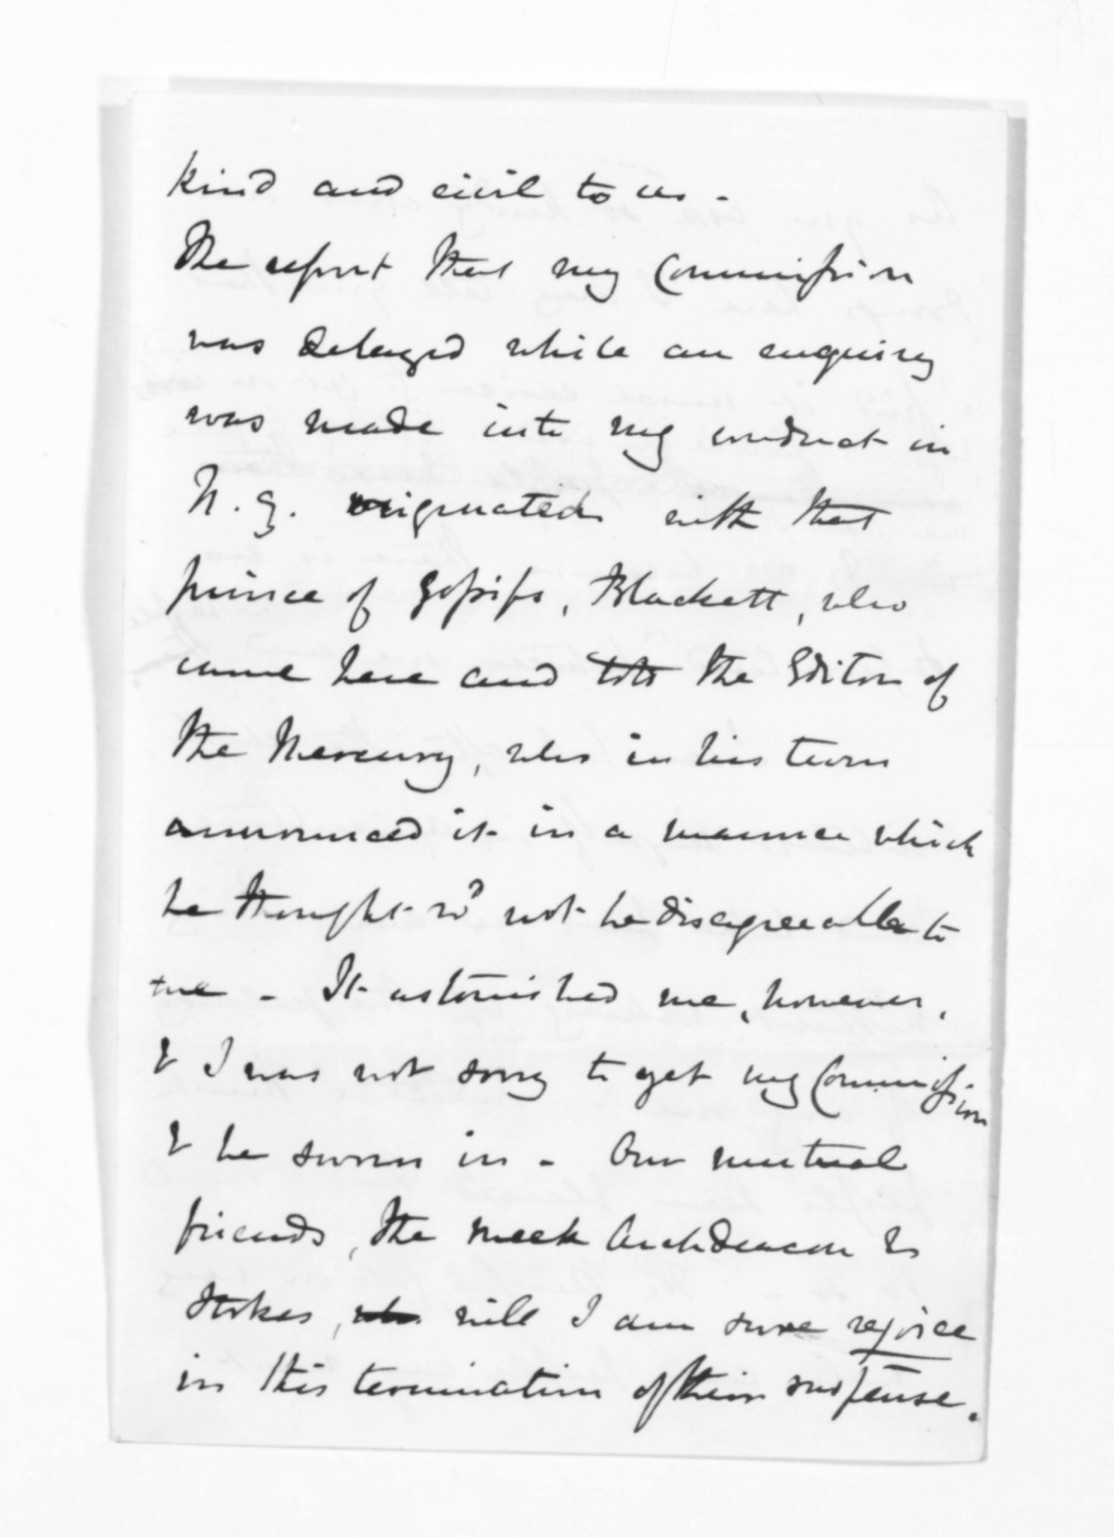 kind and civil to us -
The report that my Commission
was delayed while an enquiry
was made into my conduct in
N. Z. originated with that
prince of Gossips, Blackett, who
came here and told the Editor of
the Mercury, who in his turn
announced it in a manner which
he thought wd not be disagreeable to
me - It astonished me, however,
& I was not sorry to get my Commission
& be sworn in - Our mutual
friends, the meek Archdeacon &
Stokes, who will I am sure rejoice
in this termination of their suspense.